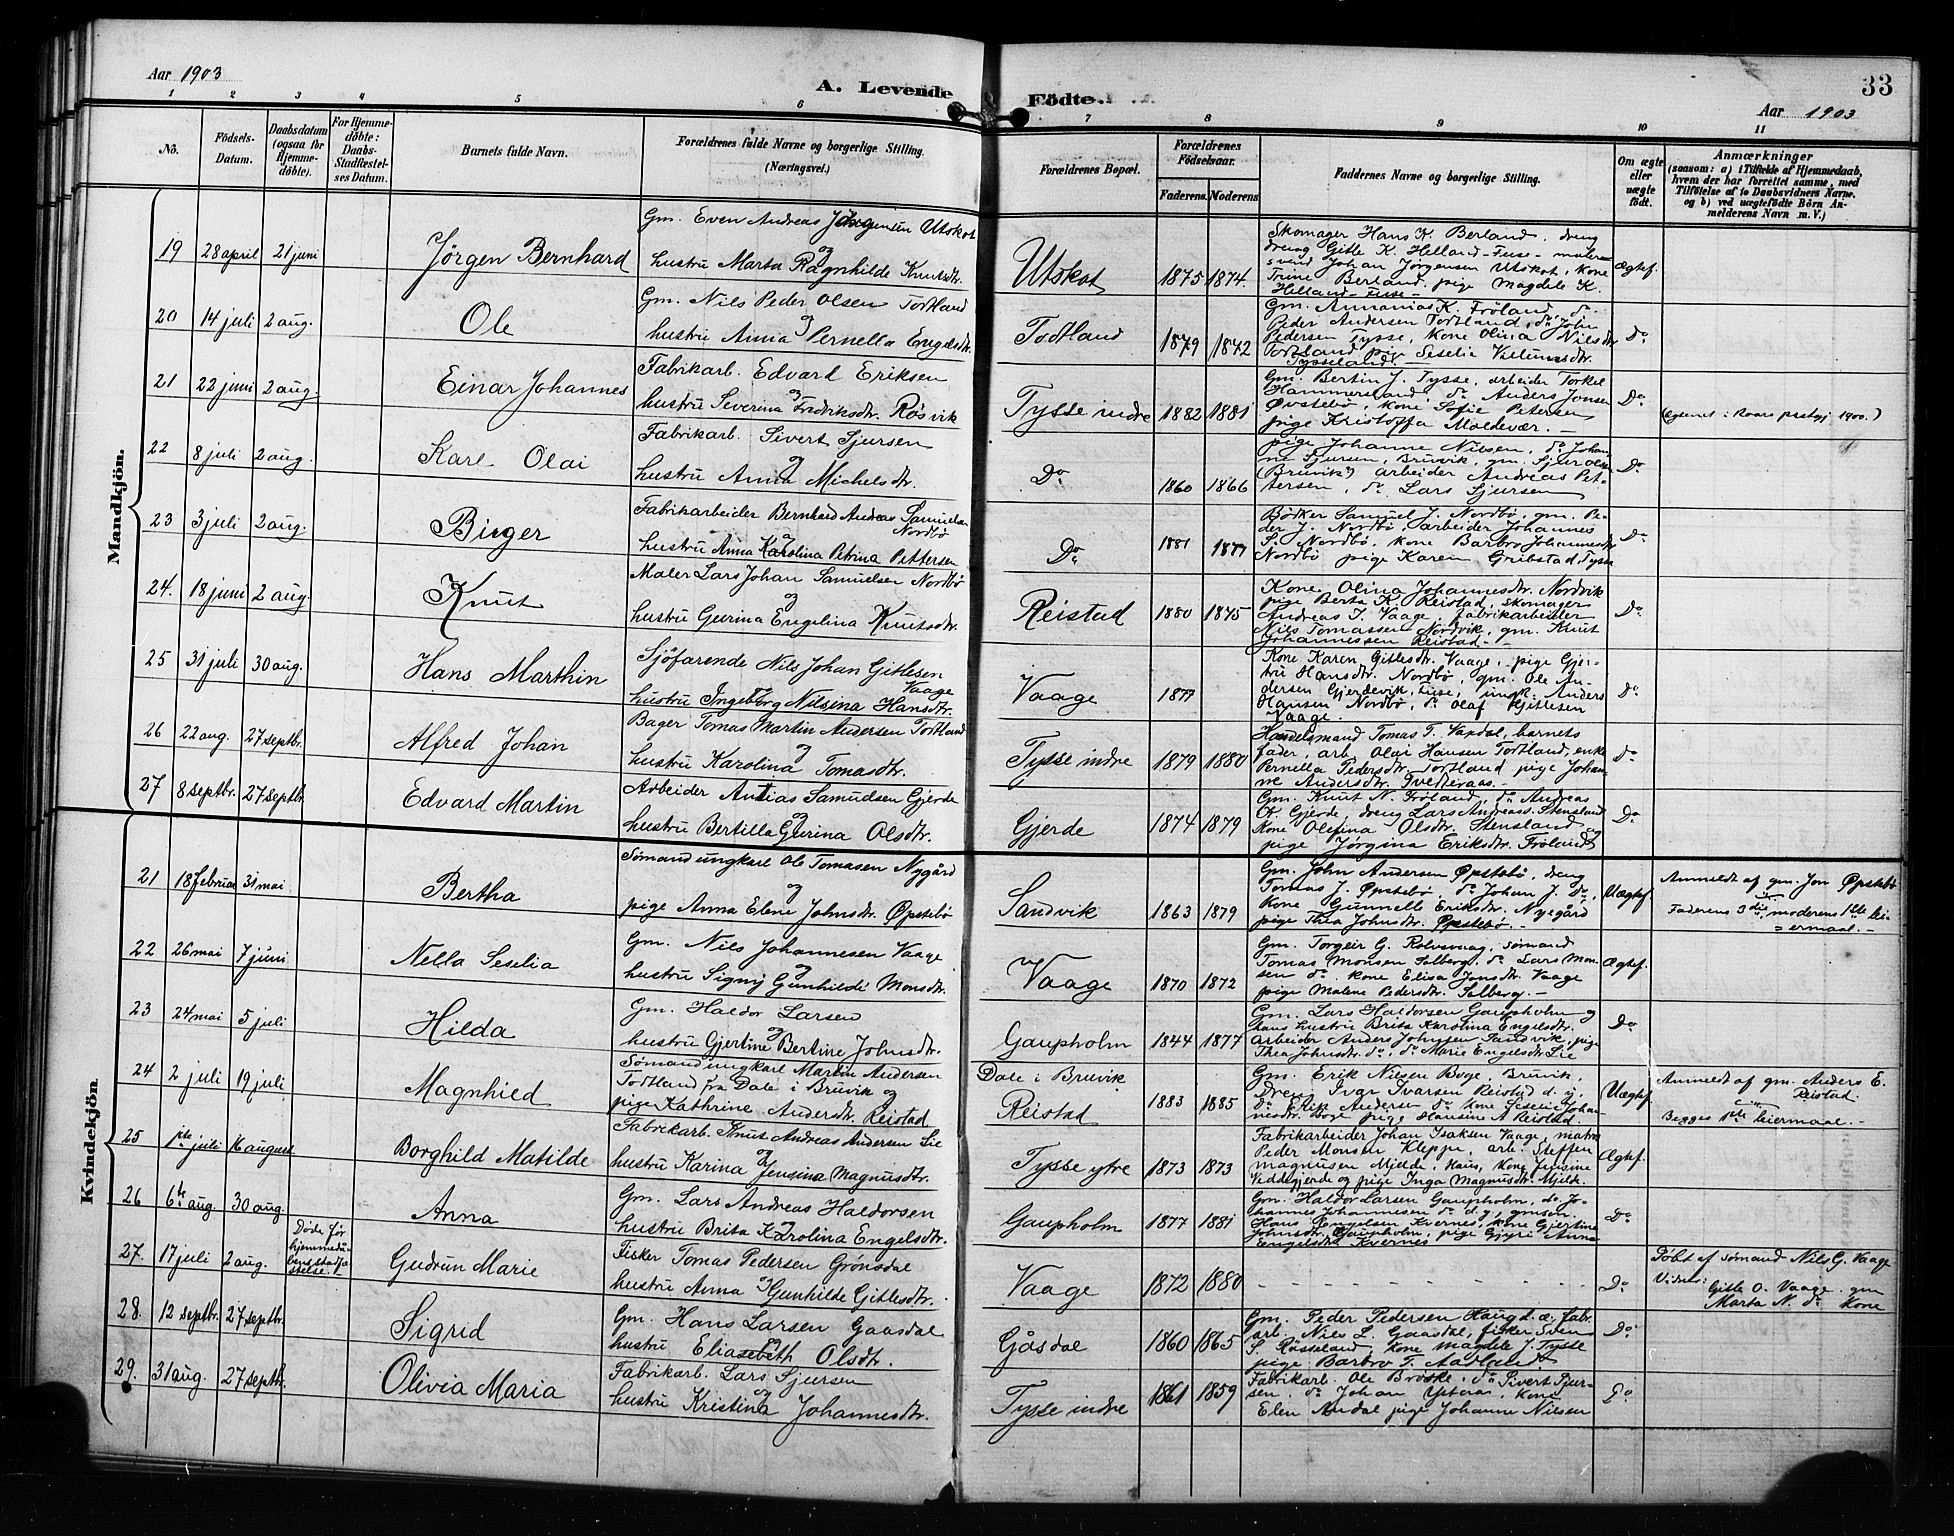 Aar 1903
A. Levende Födte.
33
Aar 1903
1 2 3 4 5 6 7 8 9 10 11
No.
Födsels-
Datum.
Daabsdatum
(ogsaa for
Hjemme-
döbte).
For Hjemme-
döbte:
Daabs-
Stadfæstel-
ses Datum.
Barnets fulde Navn.
Forældrenes fulde Navne og borgerlige Stilling.
(Næringsvei.)
Forældrenes Bopæl.
Forældrenes
Födselsaar.
Faderens. Moderens.
Faddernes Navne og borgerlige Stilling.
Om ægte
eller
uægte
födt.
Anmærkninger
(saasom: a) i Tilfælde af Hjemmedaab,
hvem der har forrettet samme, med
Tilföielse af to Daabsvidners Navne,
og b) ved uægtefödte Börn An-
melderens Navn m. V.)
Mandkjön.
19 28 april 21 juni Jørgen Bernhard
Gm. Even Andreas Jørgensen Utskot
og
hustru Marta Ragnhilde Knutsdtr.
Utskot 1875 1874
Skomager Hans K. Berland, dreng
dreng Gitle K. Helland-Fuse- maler-
svend Johan Jørgensen Utskot, kone
Trine Berland, pige Magdele K.
Helland-Fusse-
Ægtef.
20 14 juli 2 aug. Ole
Gm. Nils Peder Olsen Tortland
og
hustru Anna Pernella Engelsdtr.
Totland 1879 1842
Gm. Annanias K. Fröland, do
Peder Andersen Tortland, do John
Pedersen Tysse, kone Olina Nilsdtr
Tortland pige Seselia Villumsdtr.
Tysseland
Do
21 22 juni 2 aug. Einar Johannes
Fabrikarb. Edvard Eriksen
og
hustru Severina Fredriksdtr. Røsvik
Tysse indre 1882 1881
Gm. Bertin J. Tysse, arbeider Torkel
Hammersland, do Anders Jonsen
Øvstebö, kone Sofie Petersen
pige Kristoffa Moldevær. -
Do
22 8 juli 2 aug. Karl Olai
Fabrikarb. Sivert Sjursen
og
hustru Anna Michelsdtr.
Do 1860 1866
pige Johanne Nilsen, do Johan-
ne Sjursen, Bruvik, gm. Sjur Olsen
(Bruvik) arbeider Andreas Pet-
tersen, do Lars Sjursen
Do
23 3 juli 2 aug. Birger
Fabrikarbeider Bernhard Andreas Samuelsen
Nordbø
og
hustru Anna Karolina Petrina Pettersen
Do 1881 1877
Bødker Samuel J. Nordbø, gm. Pe-
der J. Nordbø, arbeider Johannes
S. Nordbø, kone Barbro Johannesdtr
Nordbø pige Karen Gribstad, Tysse
Do
24. 18 juni 2 aug. Knut
Maler Lars Johan Samuelsen Nordbø
og
hustru Gurina Engelina Knutsdtr.
Reistad 1880 1875
Kone Olina Johannesdtr. Nordvik
pige Berta K. Reistad, skomager
Andreas T. Vaage, fabrikarbeider
Nils Tomassen Nordvik, gm. Knut
Johannessen Reistad-
Do
25 31 juli 30 aug. Hans Marthin
Sjöfarende Nils Johan Gitlesen
Vaage
hustru Ingeborg Nilsina Hansdtr.
Vaage 1877
Kone Karen Gitlesdtr. Vaage, pige Gjer-
tru Hansdtr. Nordbø, gm. Ole An-
dersen Gjerdevik, Fuse, ungk. Anders
Hansen Nordbø, do Olaf Gitlesen
Vaage.
Do
26 22 aug. 27 septbr. Alfred Johan
Bager Tomas Martin Andersen Tortland
og
hustru Karolina Tomasdtr.
Tysse indre 1879 1880
Handelsmand Tomas T. Vaxdal, barnets
fader, arb. Olai Hansen Tortland, enke
Pernella Pedersdtr. Tortland pige Johan-
ne Andersdtr. Tvedteraas.
Do
27 8 septbr. 27 septbr. Edvard Martin
Arbeider Antias Samuelsen Gjerde
og
hustru Bertilla Gurina Olsdtr.
Gjerde 1874 1879
Gm. Knut N. Fröland, do Andreas
O. Gjerde, dreng Lars Andreass. Stensland
Kone Olefina Olsdtr. Stensland og
pige Jørgina Eriksdtr. Fröland
Do
Kvindekjön.
21 18 februar 31 mai Bertha
Sømand ungkarl Ole Tomasen Nygård
og
pige Anna Elene Johnsdtr. Øpstebö
Sandvik 1863 1879
Gm. John Andersen Øpstebö, dreng
Tomas J. Øpstebö do Johan J. Do,
kone Gunnelle Eriksdtr. Nygård
pige Thea Johnsdtr. Øpstebö. -
Uægtef.
Anmeldt af gm. Jon Øpstebö
Faderens 3die, moderens 1ste lei-
ermaal. -
22 26 mai 7 juni Nella Seselia
Gm. Nils Johannesen Vaage
og
hustru Signy Gunhilde Monsdtr.
Vaage 1870 1872
Gm. Torgeir G. Rolvsvaag, sömand
Tomas Monsen Solberg, do Lars Mon-
sen do kone Elisa Jonsdtr. Vaage
pige Malene Pedersdtr. Solberg. -
Ægtef.
23 24 mai 5 juli Hilda
Gm. Haldor Larsen
og
hustru Gjertine Bertine Johnsdtr.
Gaupholm 1844 1877
Gm. Lars Haldorsen Gaupholm og
hans hustru Brita Karolina Engelsdtr.
arbeider Anders Johnsen Sandvik, pige
Thea Johnsdtr. do, do Marie Engelsdtr. Lie
Do
24 2 juli 19 juli Magnhild
Sömand ungkarl Martin Andersen
Tortland fra Dale i Bruvik og
pige Kathrine Andersdtr. Reistad
Dale i Bruvik
Reistad 1883 1885
Gm. Erik Nilsen Boge, Bruvik,
Dreng Ivar Ivarsen Reistad d. y.
do Erik Andersen do kone Seselie Johan-
nesdtr. Boge pige Hansine A. Reistad.
Uægtef.
Anmeldt af gm. Anders E.
Reistad.
Begges 1ste leiermaal. -
25 1ste juli 16 august Borghild Matilde
Fabrikarb. Knut Andreas Andersen Lie
og
hustru Karina Jensina Magnusdtr.
Tysse ytre 1873 1873
Fabrikarbeider Johan Isaksen Vaage, matros
Peder Monsen Kleppe, arb. Steffen
Magnusen Mjelde, Haus, kone Jensine
Veddegjerde og pige Inga Magnusdtr. Mjelde.
Ægtef.
26 6te aug. 30 aug. Anna
Gm. Lars Andreas Haldorsen
og
hustru Brita Karolina Engelsdtr.
Gaupholm 1877 1881
Gm. Haldor Larsen Gaupholm, do Jo-
hannes Johannesen do d.y., gmsøn
Hans Engelsen Kvernes, kone Gjertine
Johnsdtr. Gaupholm, pige Gjyri Anna
Engelsdtr. Kvernes
Do
27. 17 juli 2 aug.
Døde før
hjemmedaa-
bens stadfæ-
stelse.
Gudrun Marie
Fisker Tomas Pedersen Grönsdal
og
hustru Anna Gunhilde Gitlesdtr.
Vaage 1872 1880
Do
Döbt af sömand Nils G. Vaage
Vidner:
Gitle O. Vaage, gm
Marta N. do kone
28. 12 septbr. 27 septbr. Sigrid
Gm. Hans Larsen Gaasdal
og
hustru Eliasebeth Olsdtr.
Gåsdal 1860 1865
Gm. Peder Pedersen Haug d.æ. fabr.
arb. Nils L. Gaasdal, fisker Sven
S. Røsseland, kone Magdele J. Tysse
pige Barbro T. Aadland
Do
29. 31 aug. 27 septbr. Olivia Maria
Fabrikarb. Lars Sjursen
og
hustru Kristina Johannesdtr.
Tysse indre 1861 1859
Fabrikarb. Ole Broske, do Sivert Sjur-
sen, do Johan kone
Elen Andal pige Johanne Nilsen
Do